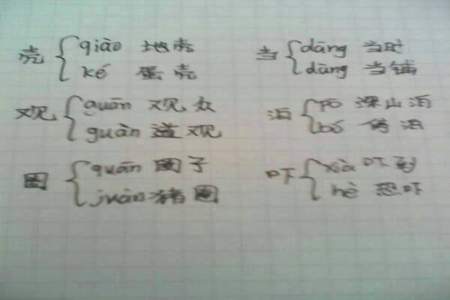 壳 qiào 地壳
ké 蛋壳
观 guān 观众
guàn 道观
圈 quān 圈子
juàn 猪圈
当 dāng 当时
dāng 当铺
泊 pō 山泊
bó 泊
吓 xià 吓到
hè 恐吓